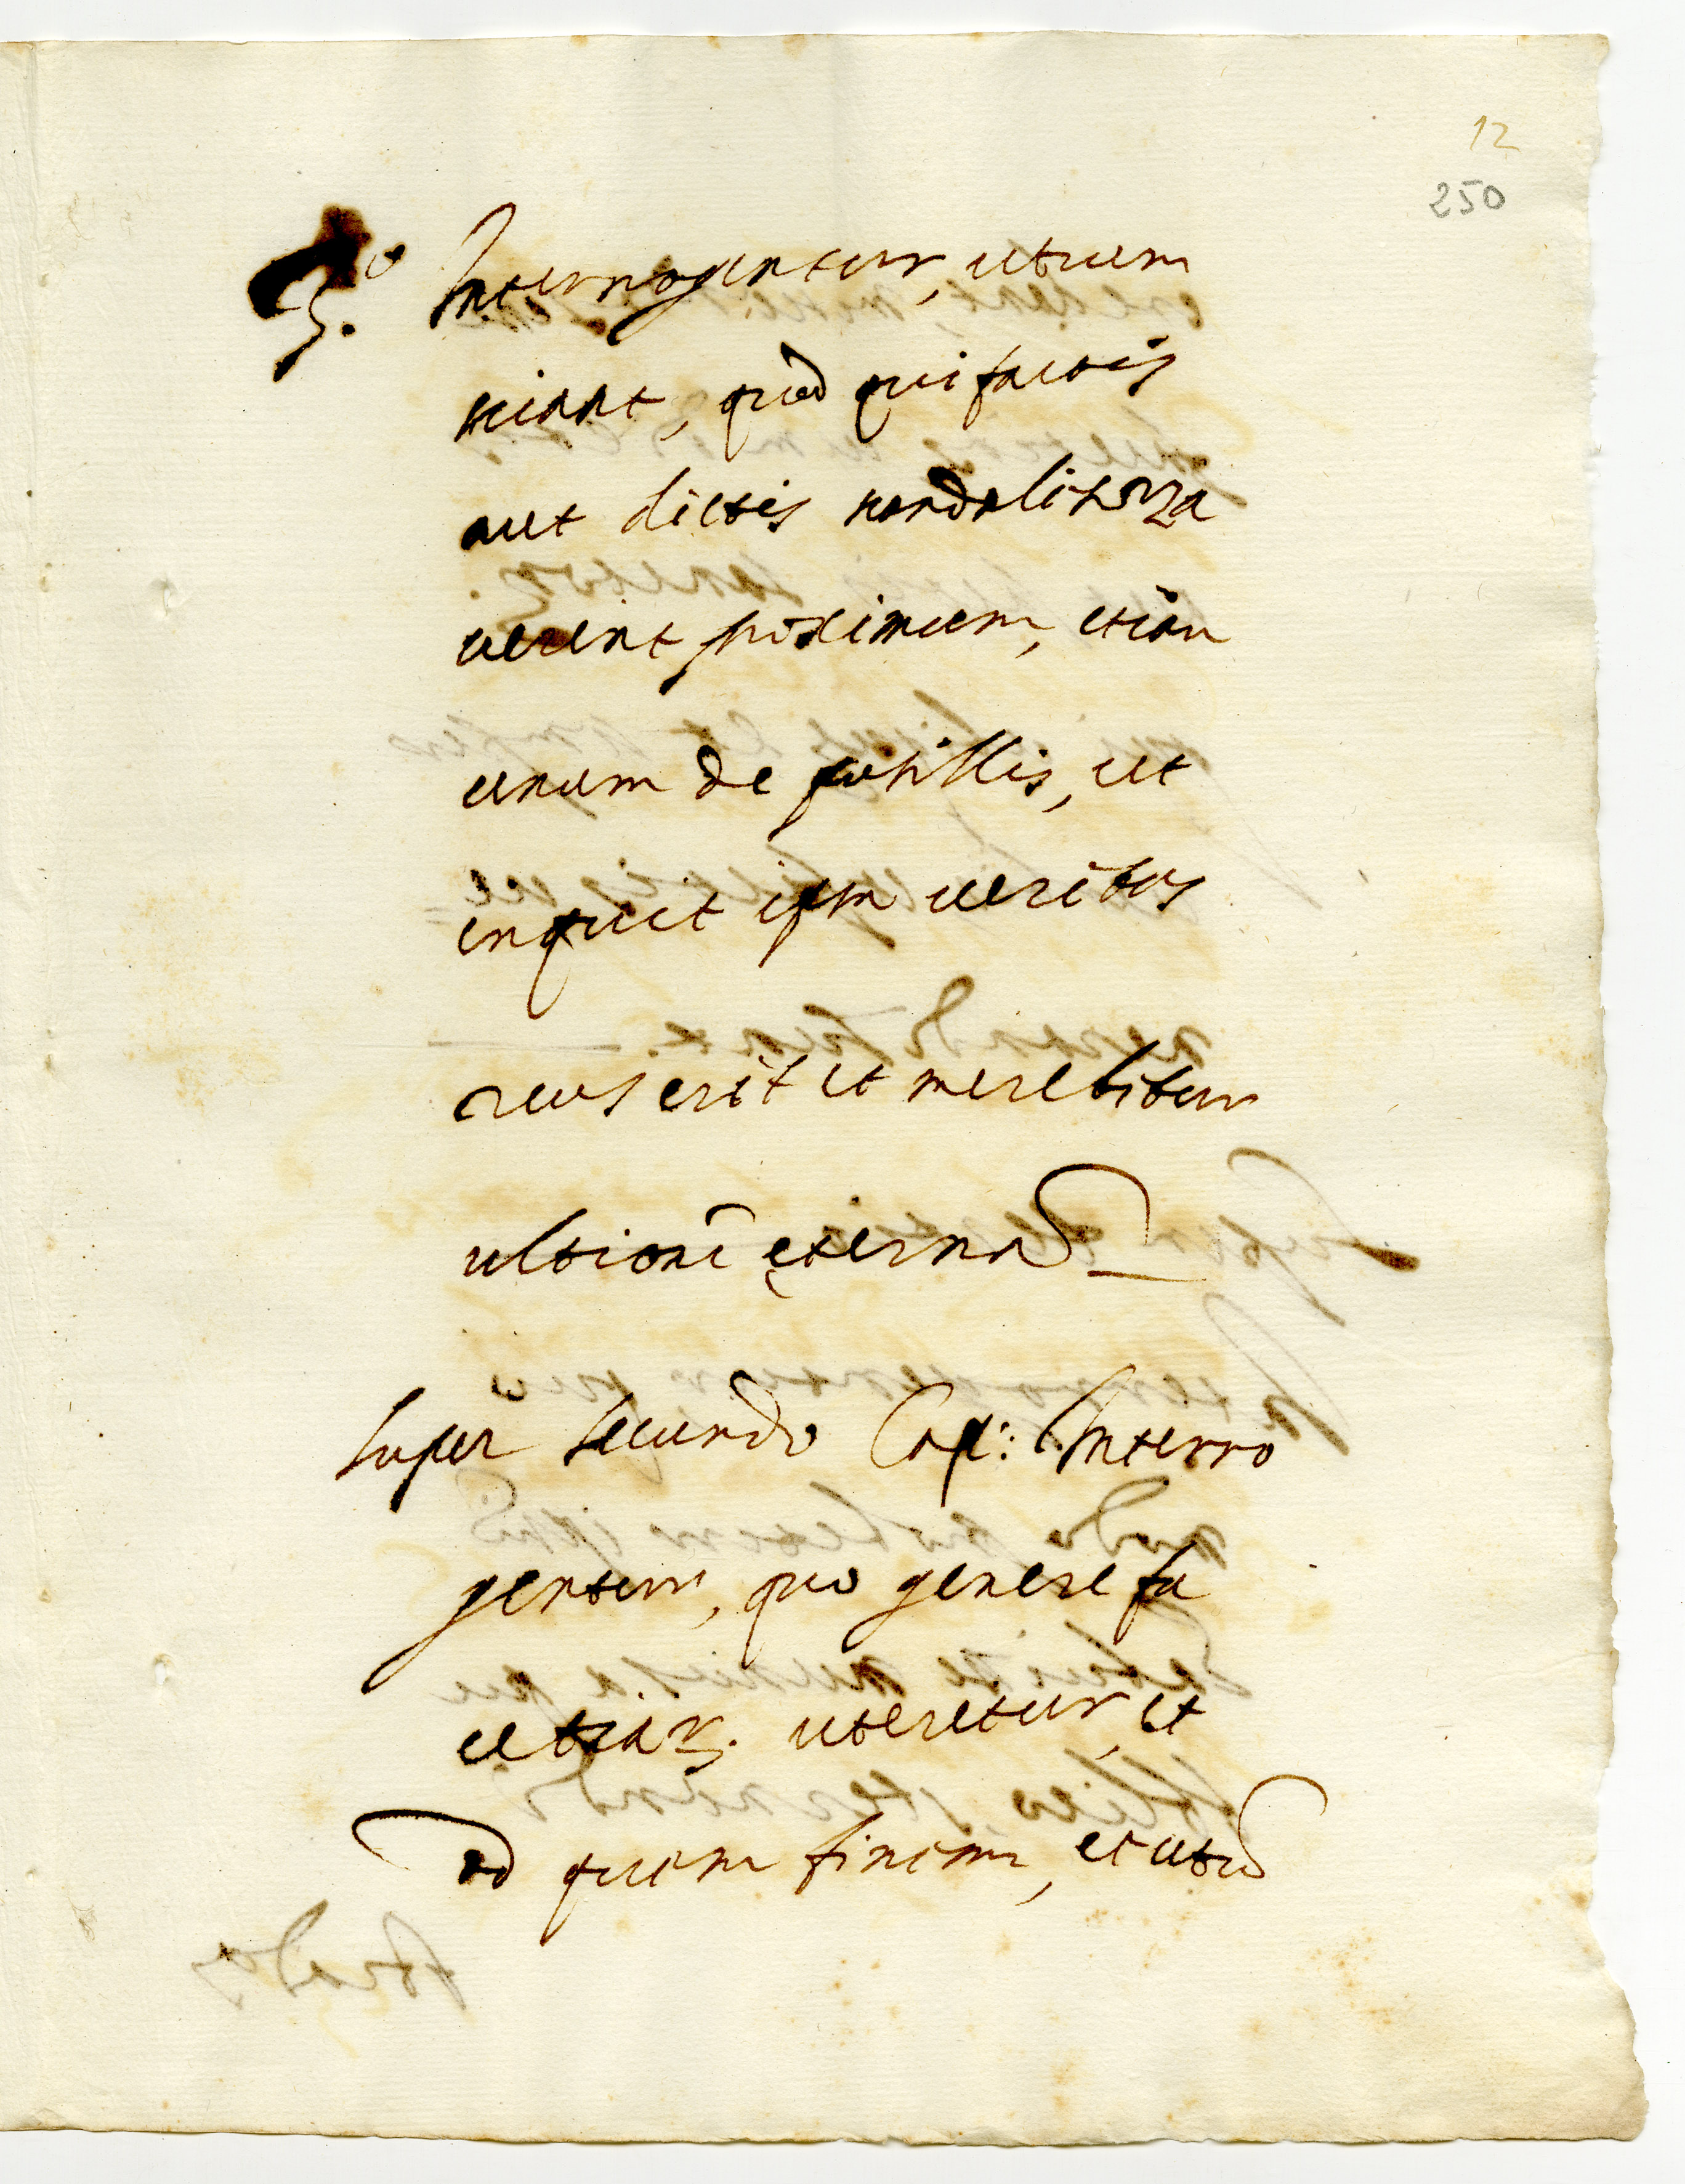 12
250
3.º Interrogentur, utrum
sciant, quòd qui factis
aut dictis scandaliza
uerint proximum, etiam
unum de pusillis, ut
inquit ipsa ueritas
reus erit et merebitur
ultionē ęternā
Super secundo Cap: Interro
gentur, quo genere fa
cetiar. uteretur, et
ad quem finem, et utrū